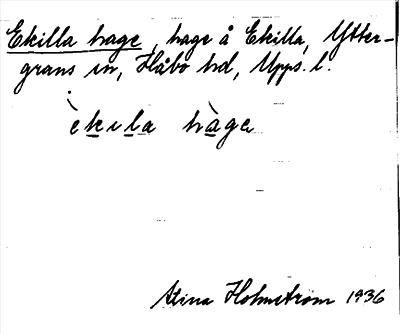 Ekilla hage, hage å Ekilla, Ytter-
grans sn, Håbo hd, Upps. l.
èkıla hàge
Stina Holmström 1936